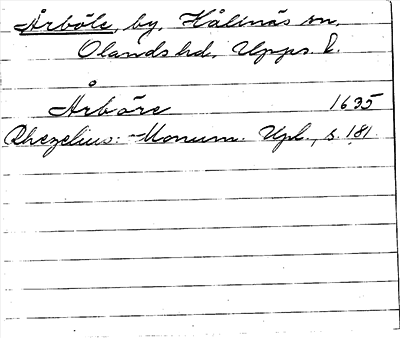 Årböle, by, Hållnäs sn,
Olands hd, Upps. l.
Årböre 1635
Rhezelius: Monum. Upl., s. 181.